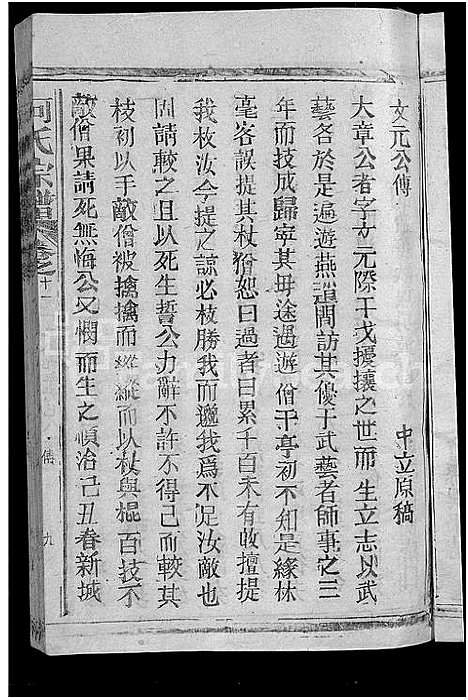 文元公傳
中立原稿
大章公者字文元際干戈擾攘之世而生立志以武
藝各於是遍遊燕趙間訪其優于武藝者師事之三
年而技成歸寧其母途過遊僧于亭初不知是緣休
毫客誤提其杖僧恕曰過者日累千百未有敢擅提
我杖汝今提之諒必枝勝我而邈我為不足汝敵也
固請較之且以死生誓公力辭不許不得已而較其
枝初以手敵僧被擒擒而縱縱而以杖與棍百技不
敵僧果請死無悔公又憫而生之順治己丑春新城
何氏宗譜
卷之十一
傳
九